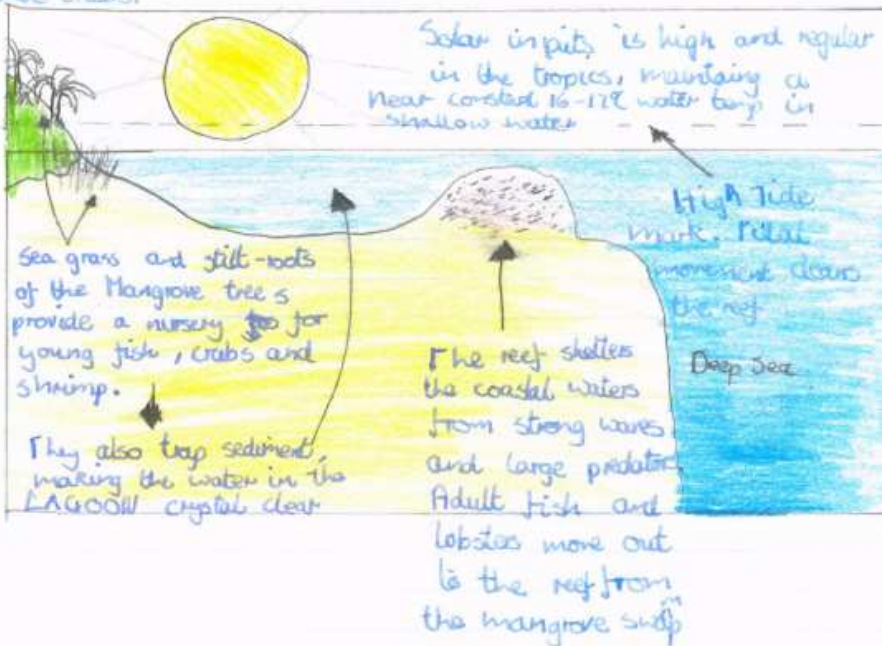 Solar inputs is high and regular
in the tropics, maintaing a
Near constant 16-17°C water temp in
shallow water
High Tide
mark. Tidal
movement clears
the reef
Sea grass and stilt-roots
of the Mangrove trees
provide a nursery for
young fish, crabs and
shrimp.
They also trap sediment,
making the water in the
LAGOON crystal clear
The reef shelters
the coastal waters
from strong waves
and large predators.
Adult fish and
lobsters move out
to the reef from
the mangrove swamp
Deep Sea